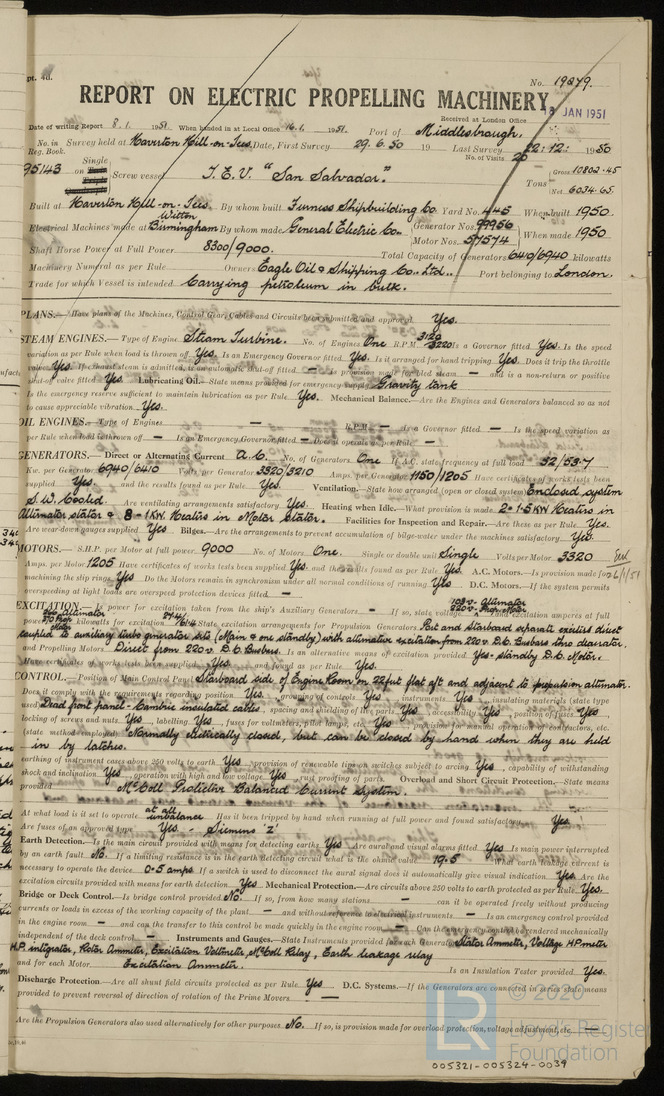 pt. 4d.
No. 19279.
REPORT ON ELECTRIC PROPELLING MACHINERY.
Received at London Office
JAN 1951
Date of writing Report 8.1. 1951. When handed in at Local Office 16.1. 1951. Port of Middlesbrough.
No. in Reg. Book. Survey held at Haverton Hill-on-Tees. Date, First Survey 29.6.50 19 Last Survey 22:12: 1950
No. of Visits 20
95143 on Single Screw vessel T.E.V. "San Salvador." Tons Gross 10802.45
Net 6034.65.
Built at Haverton Hill-on-Tees By whom built Furness Shipbuilding Co. Yard No. 445 When built 1950.
Electrical Machines made at Witton Birmingham By whom made General Electric Co. Generator Nos. 99956 When made 1950
Motor Nos. 57574
Shaft Horse Power at Full Power 8300/9000. Total Capacity of Generators 6410/6940 kilowatts
Machinery Numeral as per Rule Owners Eagle Oil & Shipping Co. Ltd. Port belonging to London.
Trade for which Vessel is intended Carrying petroleum in bulk.
PLANS.—Have plans of the Machines, Control Gear, Cables and Circuits been submitted and approved Yes.
STEAM ENGINES.—Type of Engine Steam Turbine. No. of Engines One R.P.M. 3120 3220 Is a Governor fitted Yes. Is the speed
variation as per Rule when load is thrown off Yes. Is an Emergency Governor fitted Yes. Is it arranged for hand tripping Yes. Does it trip the throttle
valve Yes. If exhaust steam is admitted, is an automatic shut-off fitted — is provision made for bled steam — and is a non-return or positive
shut-off valve fitted Yes. Lubricating Oil.—State means provided for emergency supply Gravity tank
Is the emergency reserve sufficient to maintain lubrication as per Rule Yes. Mechanical Balance.—Are the Engines and Generators balanced so as not
to cause appreciable vibration Yes.
OIL ENGINES.—Type of Engines — R.P.M. — Is a Governor fitted — Is the speed variation as
per Rule when load is thrown off — Is an Emergency Governor fitted — Does it operate as per Rule —
GENERATORS.—Direct or Alternating Current A.C. No. of Generators One If A.C. state frequency at full load 52/53.7
Kw. per Generator 6940/6410 Volts per Generator 3320/3210 Amps. per Generator 1150/1205 Have certificates of works tests been
supplied Yes. and the results found as per Rule Yes. Ventilation.—State how arranged (open or closed system) Enclosed system
S.W. Cooled. Are ventilating arrangements satisfactory Yes. Heating when Idle.—What provision is made 2-1.5 KW Heaters in
Alternator stator & 8-1 KW. Heaters in Motor Stator. Facilities for Inspection and Repair.—Are these as per Rule Yes.
Are wear-down gauges supplied Yes Bilges.—Are the arrangements to prevent accumulation of bilge-water under the machines satisfactory Yes.
MOTORS.—S.H.P. per Motor at full power 9000 No. of Motors One. Single or double unit Single Volts per Motor 3320
Amps. per Motor 1205 Have certificates of works tests been supplied Yes. and the results found as per Rule Yes. A.C. Motors.—Is provision made for
26/1/51
machining the slip rings Yes Do the Motors remain in synchronism under all normal conditions of running Yes D.C. Motors.—If the system permits
overspeeding at light loads are overspeed protection devices fitted —
EXCITATION.—Is power for excitation taken from the ship's Auxiliary Generators — If so, state voltage 108v - Alternator 220v - Prop. Motor and excitation amperes at full
power kilowatts for excitation State excitation arrangements for Propulsion Generators Port and Starboard separate exciters direct
coupled to auxiliary turbo generator sets (Main & one standby) with alternative excitation from 220v D.C. Busbars thro diverter.
Propulsion Motors Direct from 220v. D.C. Busbars. Is an alternative means of excitation provided Yes - standby D.C. Motor.
Have certificates of works tests been supplied Yes and found as per Rule Yes.
CONTROL.—Position of Main Control Panel Starboard side of Engine Room on 22 feet flat aft and adjacent to propulsion alternator.
Does it comply with the requirements regarding position Yes, grouping of control Yes, instruments Yes, insulating materials (state type
used) Dead front panel - Cambric insulated cables, spacing and shielding of live parts Yes, accessibility Yes, position of fuses Yes,
locking of screws and nuts Yes, labelling Yes, fuses for voltmeters, pilot lamps, etc. Yes, provision for manual operation of contactors, etc.
(state method employed) Normally electrically closed, but can be closed by hand when they are held
in by latches.
earthing of instrument cases above 250 volts to earth Yes, provision of renewable tips on switches subject to arcing Yes, capability of withstanding
shock and inclination Yes, operation with high and low voltage Yes, rust proofing of parts Overload and Short Circuit Protection.—State means
provided McColl Protective Balanced Current System.
At what load is it set to operate at all unbalance Has it been tripped by hand when running at full power and found satisfactory Yes.
Are fuses of an approved type Yes - Siemens 'Z'
Earth Detection.—Is the main circuit provided with means for detecting earths Yes Are aural and visual alarms fitted Yes. Is main power interrupted
by an earth fault No. If a limiting resistance is in the earth detecting circuit what is the ohmic value 19.5 What earth leakage current is
necessary to operate the device 0.5 amps If a switch is used to disconnect the aural signal does it automatically give visual indication Yes. Are the
excitation circuits provided with means for earth detection Yes Mechanical Protection.—Are circuits above 250 volts to earth protected as per Rule Yes.
Bridge or Deck Control.—Is bridge control provided No. If so, from how many stations — can it be operated freely without producing
currents or loads in excess of the working capacity of the plant — and without reference to electrical instruments — Is an emergency control provided
in the engine room — and can the transfer to this control be made quickly in the engine room — Can be rendered mechanically
independent of the deck control — Instruments and Gauges.—State Instruments provided for each Generator Stator Ammeter, Voltage H.P. meter
H.P. integrator, Rotor Ammeter, Excitation Voltmeter, McColl Relay, Earth leakage relay
and for each Motor Excitation Ammeter. Is an Insulation Tester provided Yes.
Discharge Protection.—Are all shunt field circuits protected as per Rule Yes D.C. Systems.—If the Generators are connected in series state means
provided to prevent reversal of direction of rotation of the Prime Movers —
Are the Propulsion Generators also used alternatively for other purposes No. If so, is provision made for overload protection, voltage adjustment, etc. —
LR
© 2020
Lloyd's Register
Foundation
005321-005324-0039